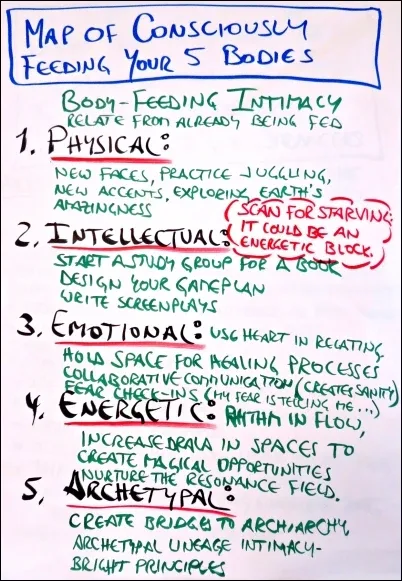 MAP OF CONSCIOUSLY
FEEDING YOUR 5 BODIES
BODY-FEEDING INTIMACY
RELATE FROM ALREADY BEING FED
1. PHYSICAL:
NEW FACES, PRACTICE JUGGLING,
NEW ACCENTS, EXPLORING EARTH'S
AMAZINGNESS
SCAN FOR STARVING:
IT COULD BE AN
ENERGETIC BLOCK.
2. INTELLECTUAL:
START A STUDY GROUP FOR A BOOK
DESIGN YOUR GAMEPLAN
WRITE SCREENPLAYS
3. EMOTIONAL: USE HEART IN RELATING
HOLD SPACE FOR HEALING PROCESSES
COLLABORATIVE COMMUNICATION (CREATES SANITY)
FEAR CHECK-INS (MY FEAR IS TELLING ME...)
4. ENERGETIC: IN FLOW,
INCREASE DRALA IN SPACES TO
CREATE MAGICAL OPPORTUNITIES
NURTURE THE RESONANCE FIELD.
5. ARCHETYPAL:
CREATE BRIDGES TO ARCHIARCHY
ARCHETYPAL LINEAGE INTIMACY-
BRIGHT PRINCIPLES